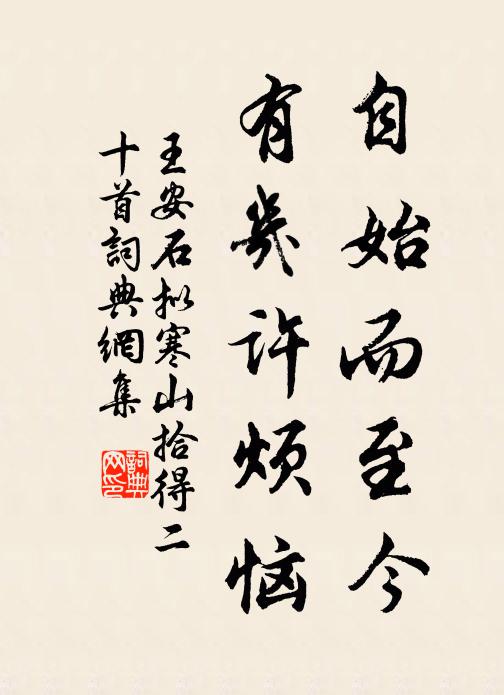 自始而至今
有幾许烦恼
王安石拟寒山拾得二
十首詞典網集
詞典
网印